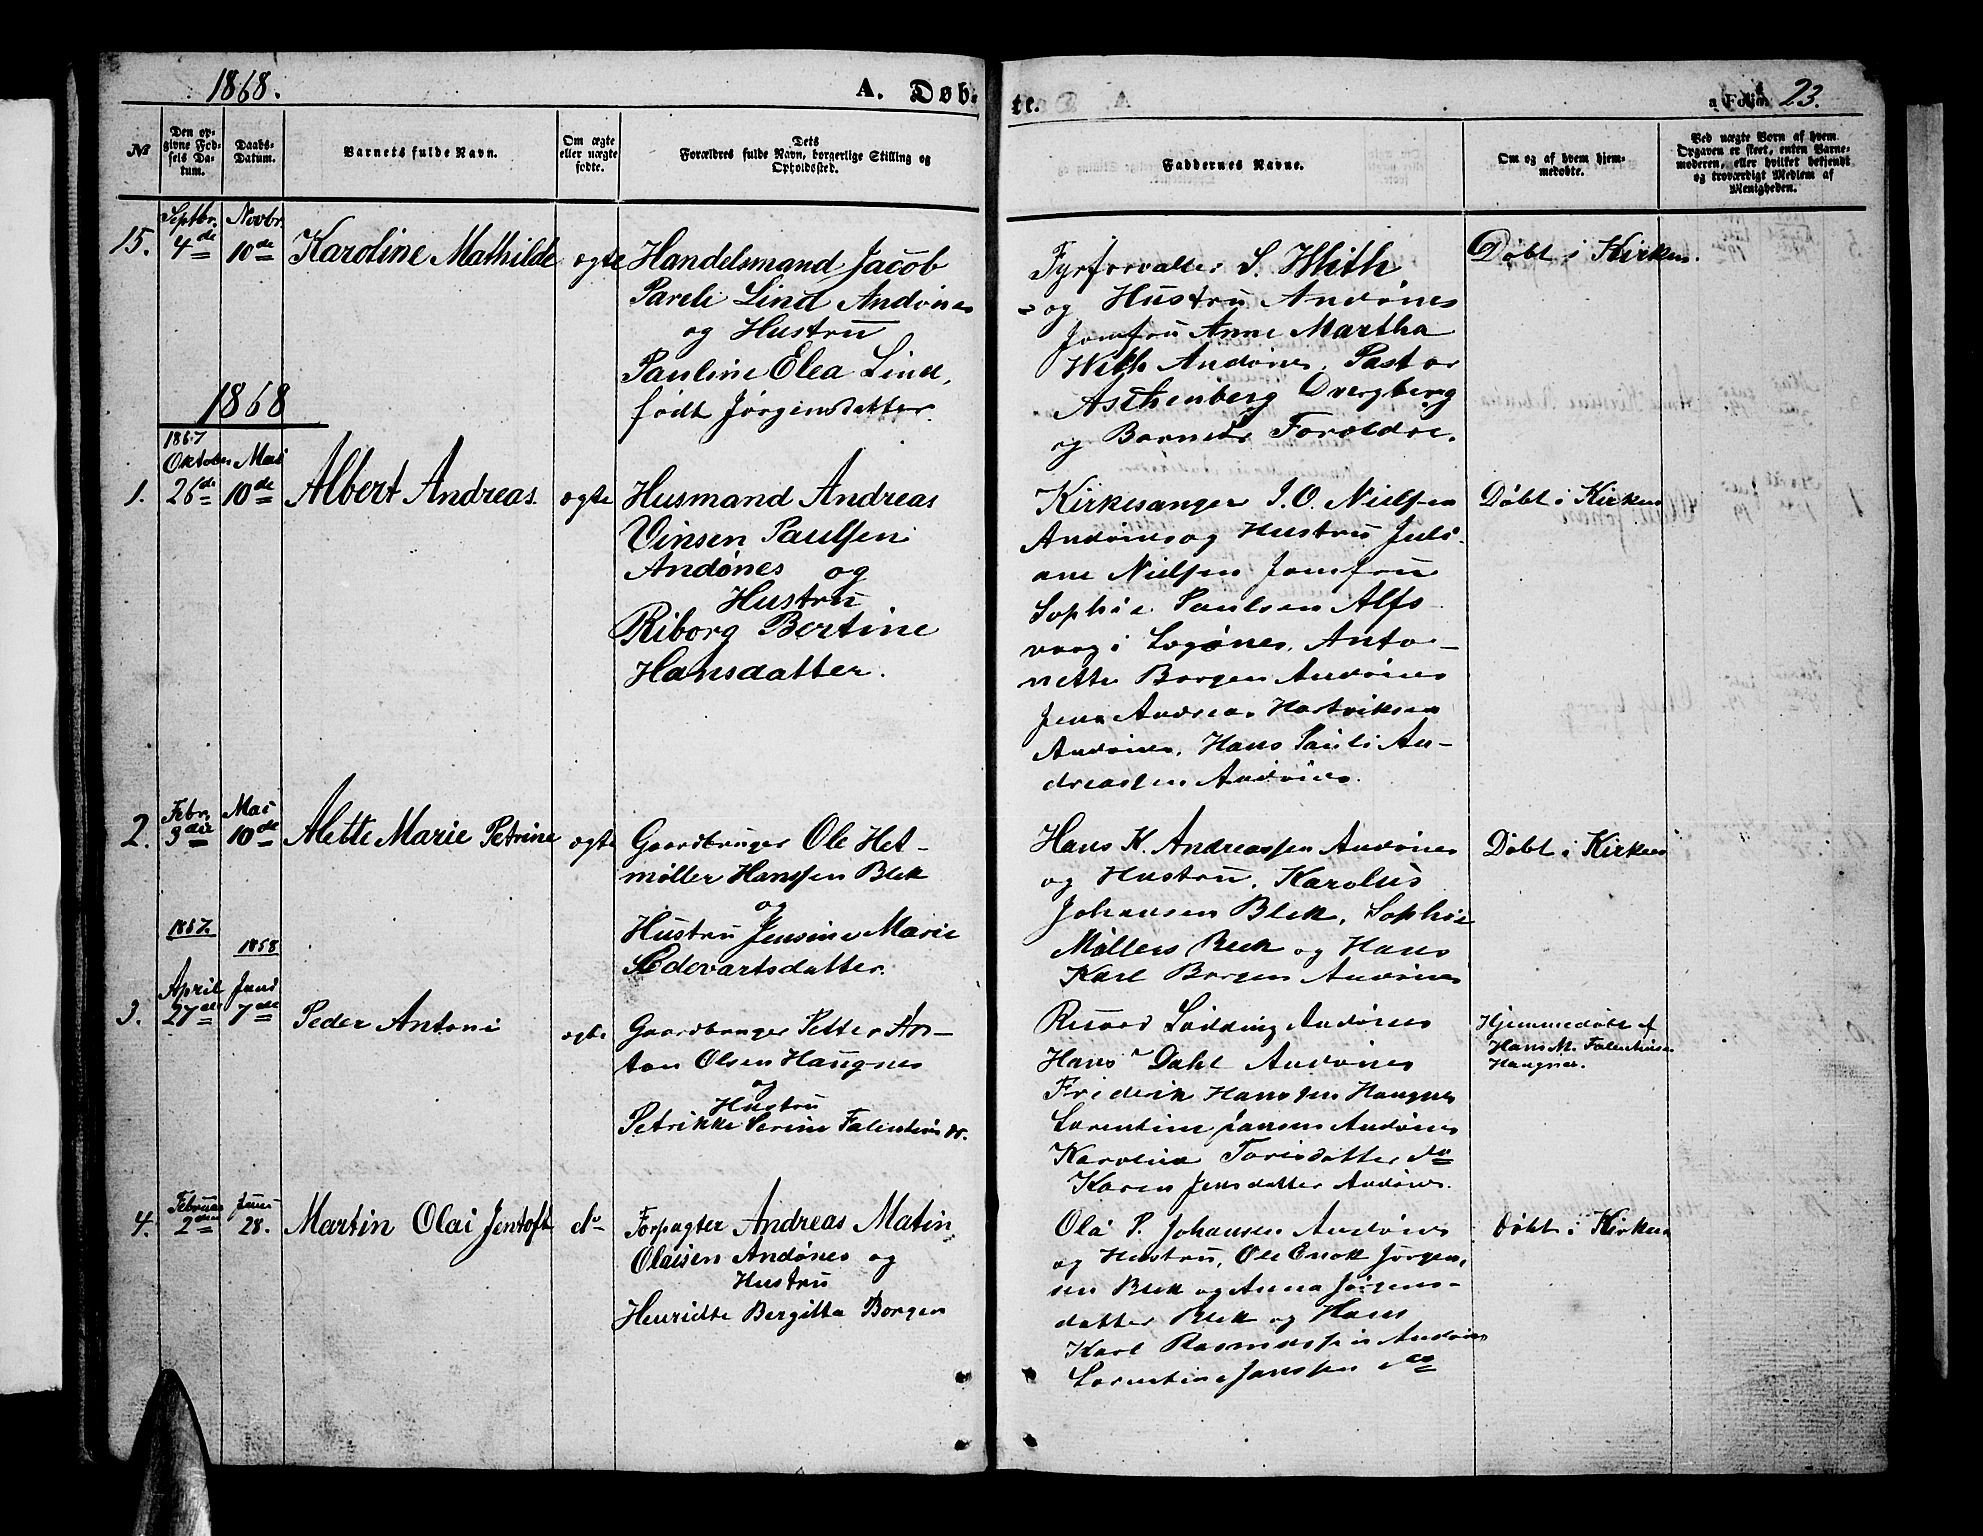 1868.
A. Døb-
te.
a Folio 23.
№
Den op-
givne Fød-
sels Da-
tum.
Daabs-
Datum.
Barnets fulde Navn.
Om ægte
eller uægte
fødte.
Dets
Forældres fulde Navn, borgerlige Stilling og
Opholdssted.
Faddernes Navne.
Om og af hvem hjem-
medøbte.
Ved uægte Børn af hvem
Opgaven er skeet, enten Barne-
moderen, eller hvilket bekjendt
og troværdigt Medlem af
Menigheden.
15.
Septbr.
4de
Novbr.
10de
Karoline Mathilde
ægte
Handelsmand Jacob
Pareli Lind Andønes
og Hustru
Pauline Elea Lind,
født Jørgensdatter.
Fyrforvalter S. With
og Hustru Andønes
Jomfru Anne Martha
With Andønes, Pastor
Aschenberg Dvergberg
og Barnets Foreldre.
Døbt i Kirken.
1868
1.
1867
Oktober
26de
Mai
10de
Albert Andreas.
ægte
Husmand Andreas
Vinsen Paulsen
Andønes og
Hustru
Riborg Bertine
Hansdatter.
Kirkesanger I. O. Nielsen
Andønes og Hustru Juli-
ane Nielsen Jomfru
Sophie Paulsen Alfs-
vaag i Logønes, Anto-
nette Borgen Andønes
Jens Andreas Hartviksen
Andønes, Hans Pauli An-
dreassen Andønes.
Døbt i Kirken
2.
Febr.
3die
Mai
10de
Alette Marie Petrine
ægte
Gaardbruger Ole Het-
møller Hanssen Blek
og
Hustru Jensine Marie
Edevartsdatter.
Hans K. Andreassen Andønes
og Hustru, Karolus
Johansen Blek, Sophie
Møllers Blek og Hans
Karl Borgen Andønes
Døbt i Kirken
3.
1867.
April
27de
1868
Juni
7de
Peder Antoni
ægte
Gaardbruger Petter An-
ton Olsen Haugnes
og
Hustru
Petrikke Serine Falentins dr.
Lidding Andønes
Hans Dahl Andønes
Friderik Hanssen Haugnes
Lorentine Jansens Andønes
Karoline Torisdatter do
Karen Jensdatter Andønes.
Hjemmedøbt af
Hans M. Falentinsen
Haugnes.
4.
Februar
2den
Juni
28.
Martin Olai Jentoft
do
Forpagter Andreas Matin
Olaisen Andønes og
Hustru
Henridte Bergitta Borgen
Ola P. Johansen Andønes
og Hustru, Ole Enok Jørgen-
sen Blek og Anna Jørgens-
datter Blek og Hans
Karl Rasmussen Andønes
Lorentine Janssen do
Døbt i Kirken